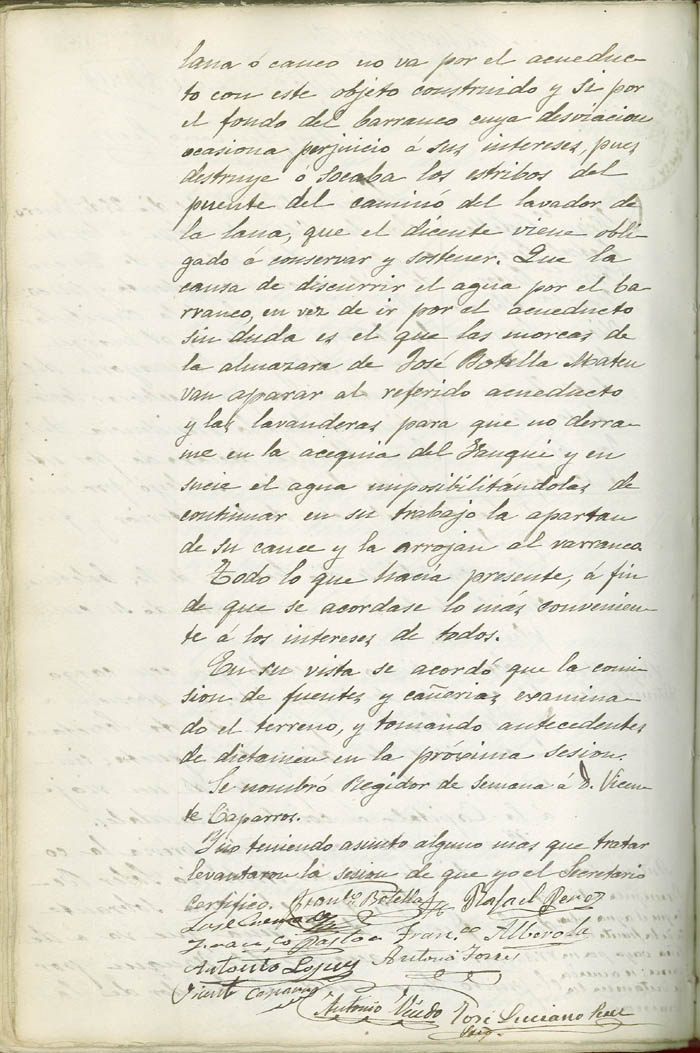 lana ó cauco no va por el acueduc-
to con este objeto construido y si por
el fondo del barranco cuya desviacion
ocasiona perjuicio á sus intereses, pues
destruye ó socaba los estribos del
puente del camino del lavador de
la lana, que el dicente viene obli-
gado á conservar y sostener. Que la
causa de discurrir el agua por el ba-
rranco, en vez de ir por el acueducto
sin duda es el que las morcas de
la almazara de José Botella Mateu
van aparar al referido acueducto
y las lavanderas para que no derra-
me en la acequia del Fanqué y en
sucie el agua imposibilitándolas de
continuar en su trabajo la apartan
de su cauce y la arrojan al varranco.
Todo lo que hacia presente, á fin
de que se acordase lo mas convenien-
te á los intereses de todos.
En su vista se acordó que la comi-
sion de fuentes y cañerias examina-
do el terreno, y tomando antecedentes
de dictamen en la próxima sesion.
Se nombró Regidor de semana á D. Vicen-
te Caparros.
Y no teniendo asunto alguno mas que tratar
levantaron la sesion de que yo el Secretario
certifico. Franco. Botella Rafael Perez
José
Francisco Pastor Franco. Alberola
Antonio Lopez Antonio Torres
Vicente Caparros
Antonio José Luciano
Srio.